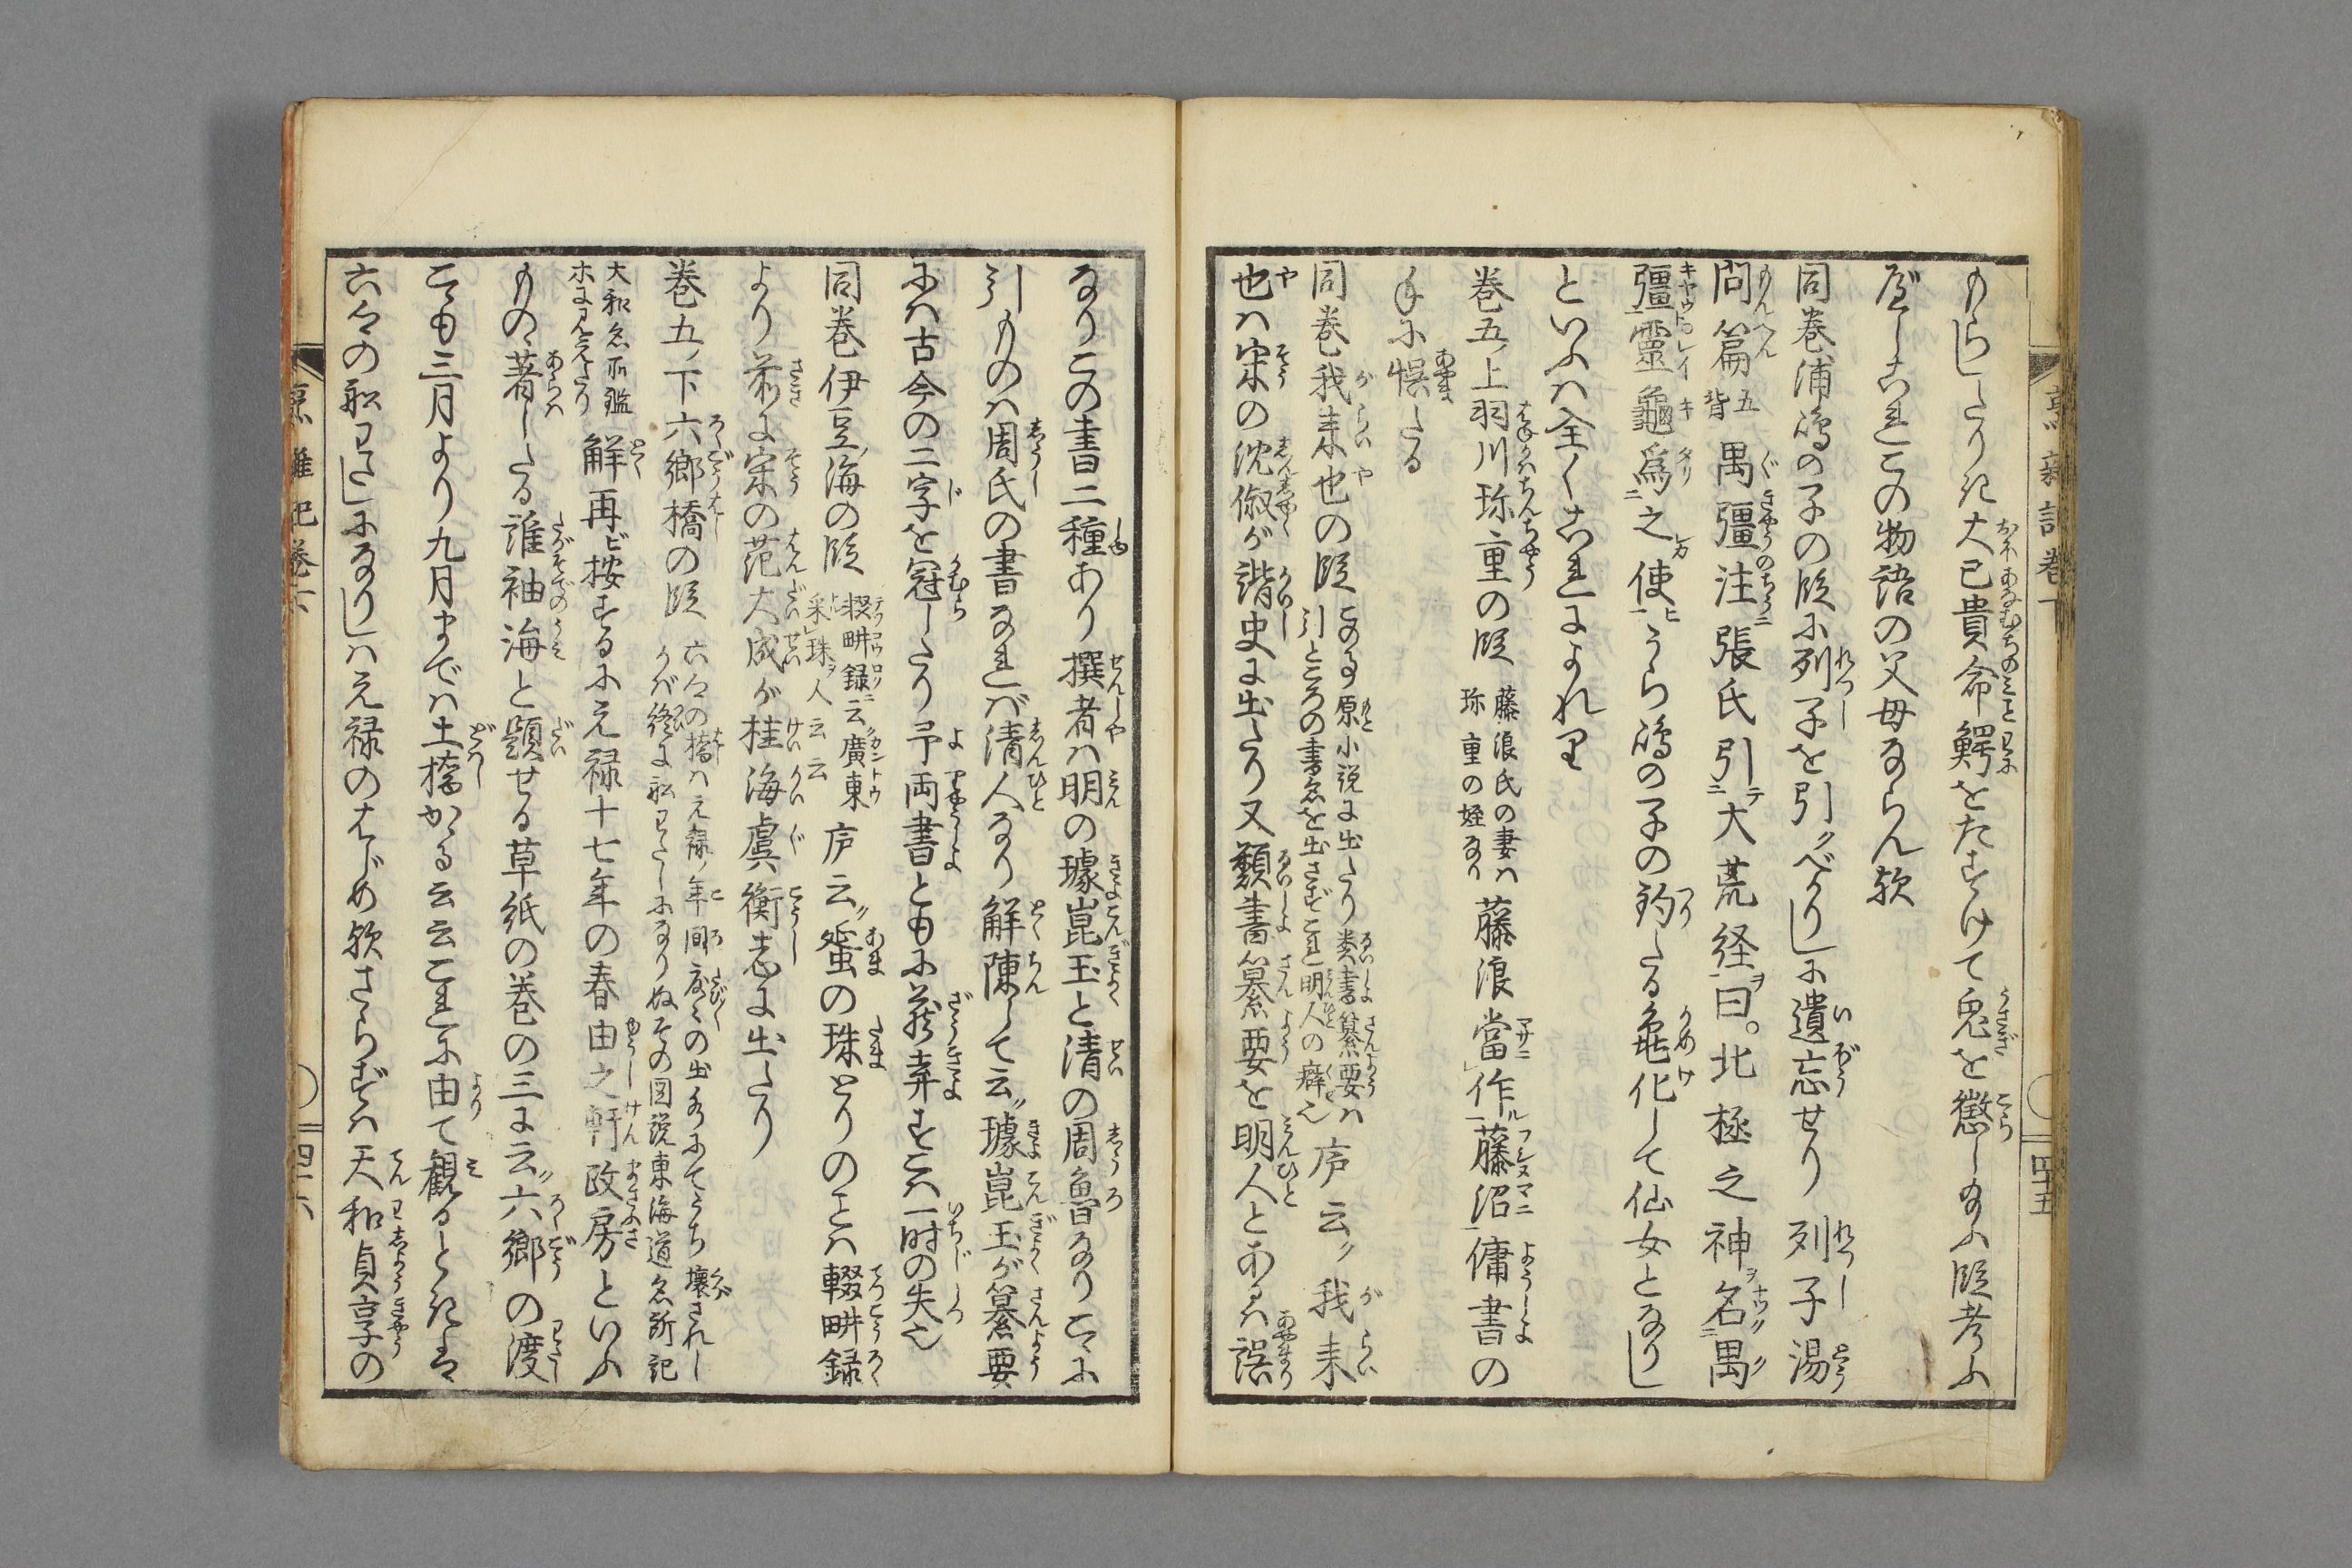 もらしたりき大己貴命鰐をたすけて兎を懲し給ふ段考ふ
べしこれこの物語の父母ならん歟
同巻浦嶋の子の段に列子を引べかりしに遺忘せり 列子湯
問篇 五背 禺彊注張氏引大荒経曰北極之神名禺
彊靈龜為之使うら嶋の子の釣たる亀化して仙女となりし
といふは全くこれによれり
巻五上羽川珎重の段 藤浪氏の妻は 珎重の姪なり 藤浪當作藤沼傭書の
手に悞たる
同巻我来也の段 この事原小説に出たり类書纂要は 引ところの書名を出さずこれ明人の癖也 庁云我来
也は宋の沈俶が諧史に出たり又類書纂要を明人とあるは誤
なりこの書二種あり撰者は明の璩崑玉と清の周魯なりこゝに
引ものは周氏の書なれば清人なり解陳して云璩崑玉が纂要
には古今の二字を冠したり予両書ともに蔵弆すこは一時の失也
同巻伊豆海の段 輟畊録云廣東 采珠人云云 庁云蜑の珠とりのことは輟畊録
より前に宋の范大成が桂海虞衡志に出たり
巻五下六郷橋の段 六郷の橋は元禄ノ年間度々の出水にてうち壊されし かば終に舩わたしになりぬその図説東海道名所記
大和名所鑑 ホに見えたり 解再ビ按ずるに元禄十七年の春由之軒政房といふ
もの著したる誰袖海と題せる草紙の巻の三に云六郷の渡
こゝも三月より九月までは土橋かゝる云云これに由て観るときは
六郷の舩わたしになりしは元禄のはじめ歟さらずは天和貞享の
烹雜記巻下
四十五
烹雜記巻下
四十六